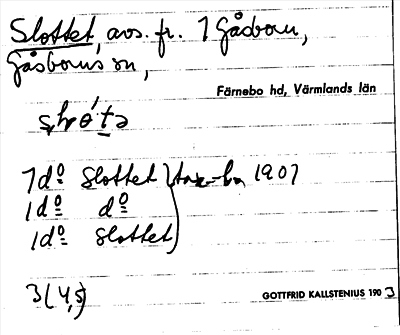 Slottet, avs. fr. 1 Gåsborn,
Gåsborns sn,
Färnebo hd, Värmlands län
1 dº Slottet
1 dº dº
1 dº Slottet
1907
3(4,5)
GOTTFRID KALLSTENIUS 1903